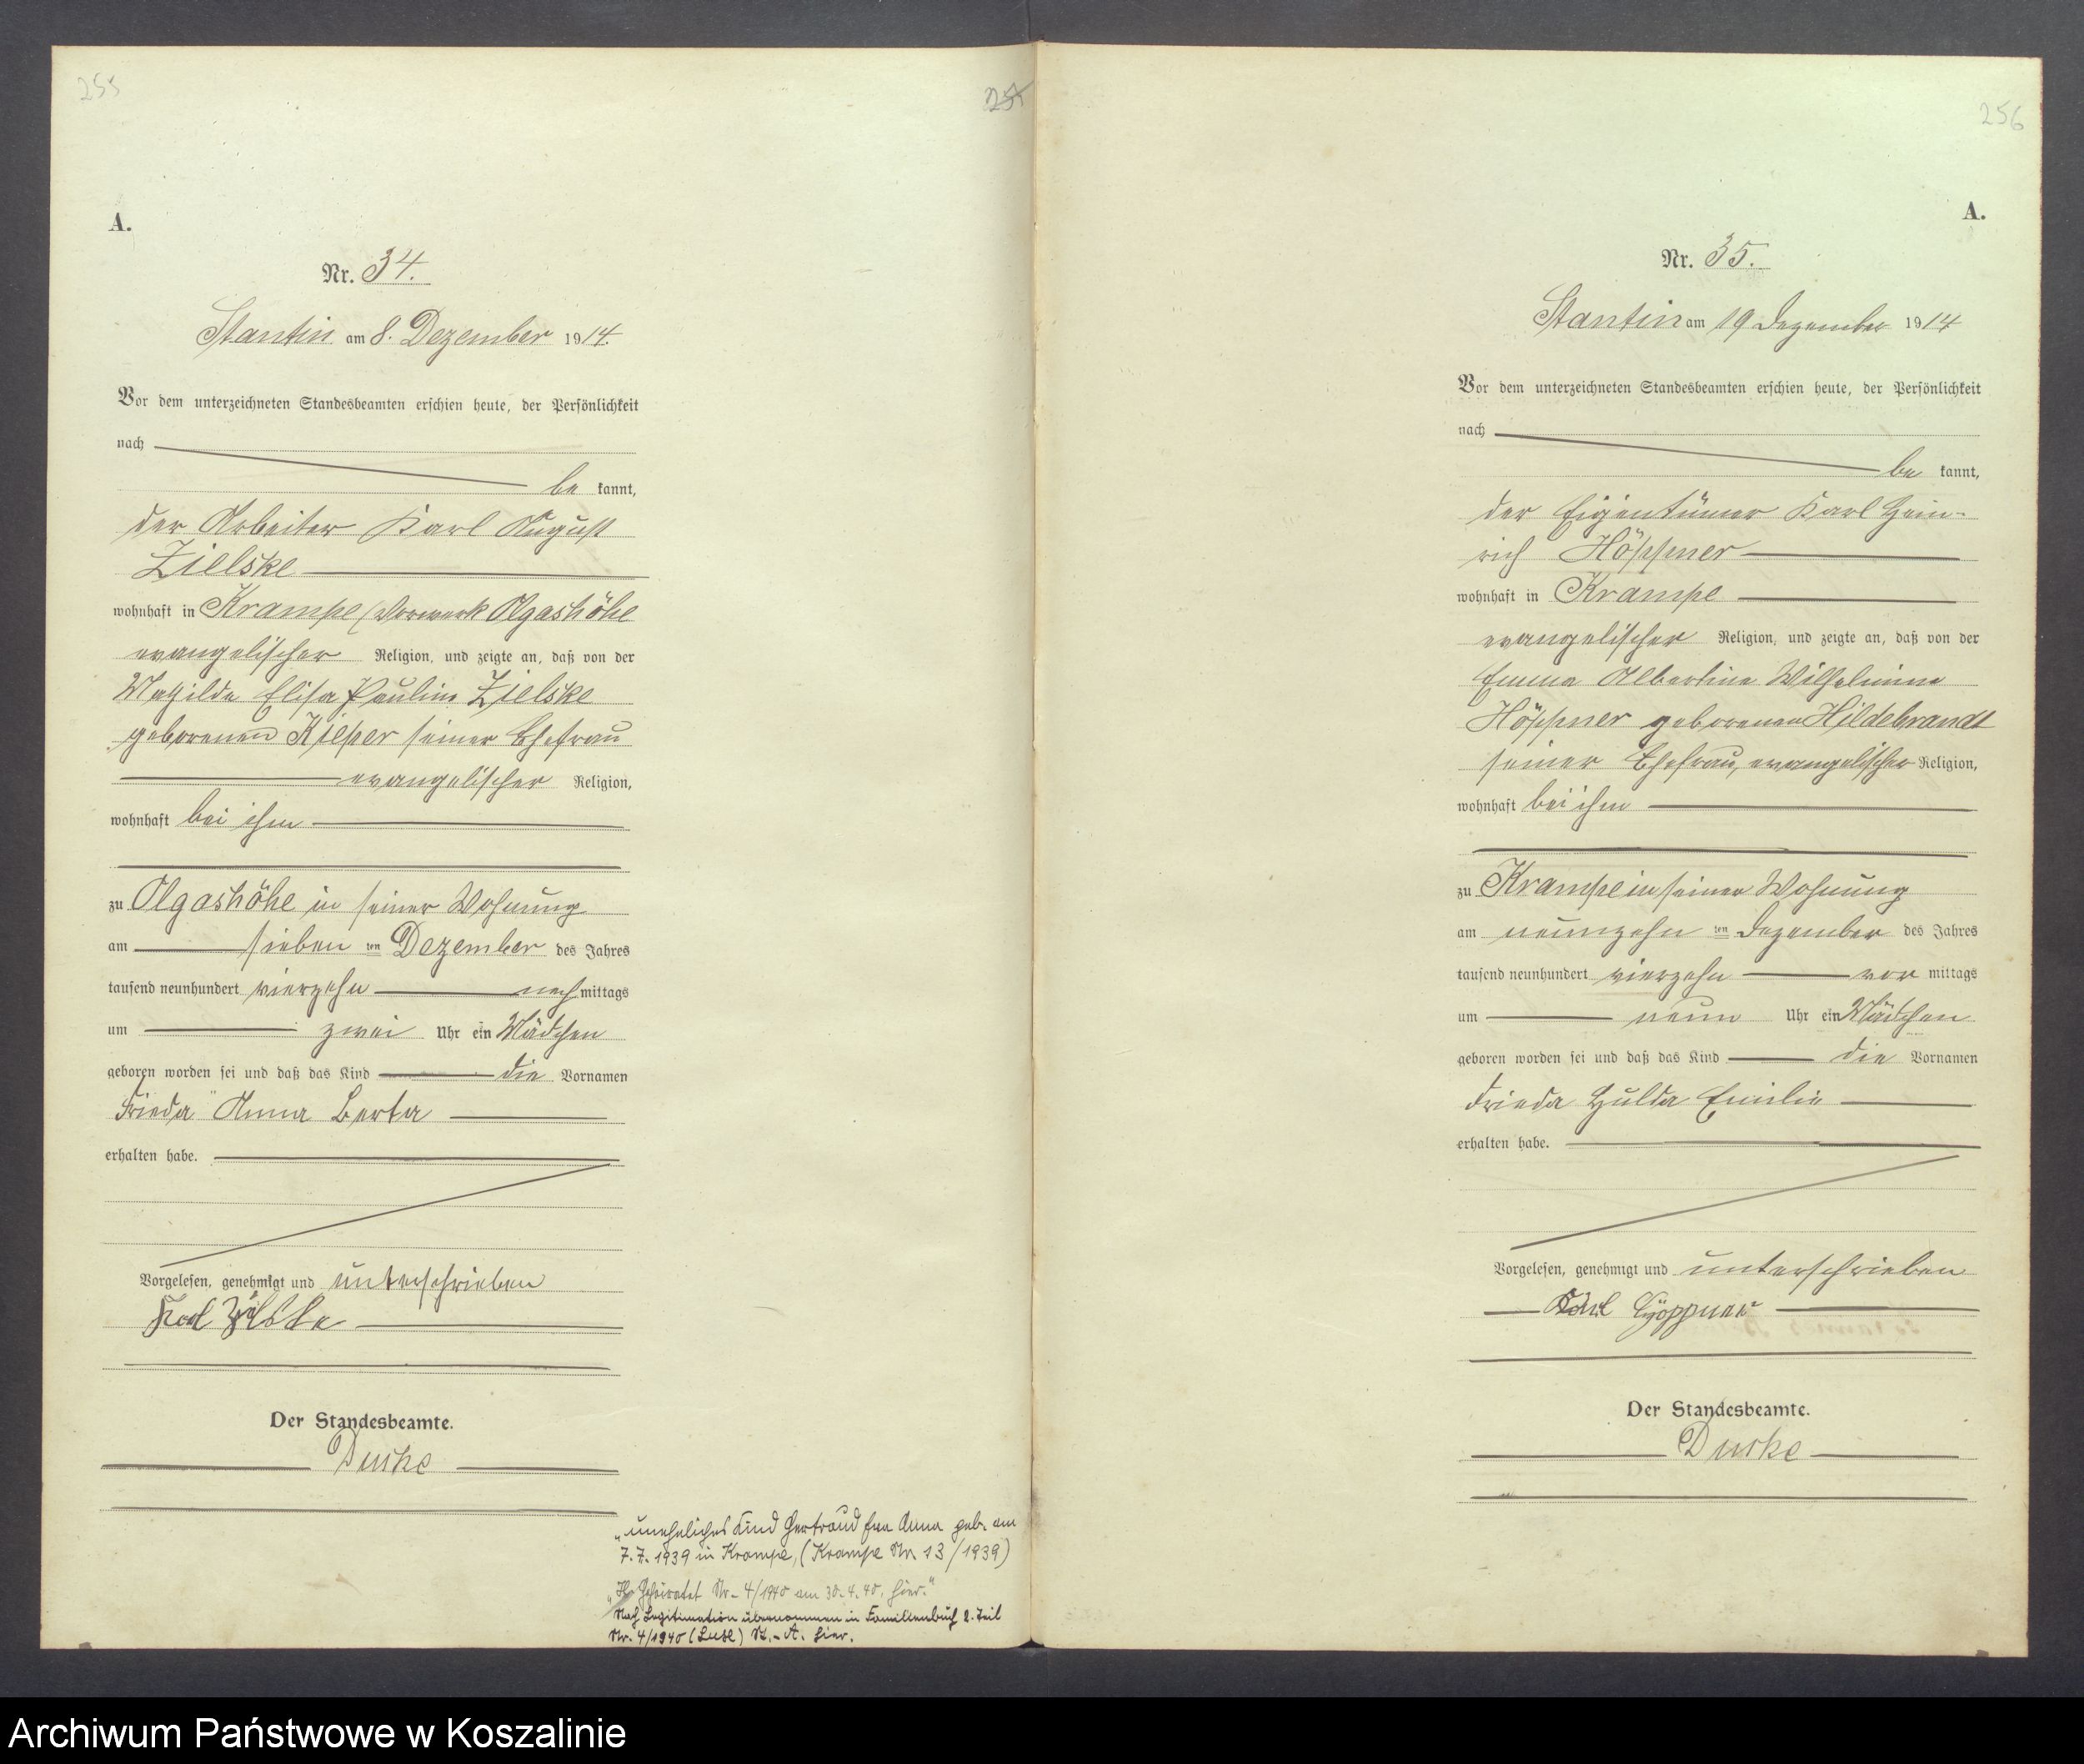 255
255
A.
Nr. 34.
Stantin am 8. Dezember 1914.
Vor dem unterzeichneten Standesbeamten erschien heute, der Persönlichkeit
nach
be kannt,
der Arbeiter Karl August
Zielske
wohnhaft in Krampe (Vorwerk Olgashöhe
evangelischer Religion, und zeigte an, daß von der
Mathilde Elisa Pauline Zielske
geborenen Kieper seiner Ehefrau
evangelischer Religion,
wohnhaft bei ihm
zu Olgashöhe in seiner Wohnung
am sieben ten Dezember des Jahres
tausend neunhundert vierzehn nach mittags
um zwei Uhr ein Mädchen
geboren worden sei und daß das Kind die Vornamen
Frieda Anna Berta
erhalten habe.
Vorgelesen, genehmigt und unterschrieben
Karl Zielske
Der Standesbeamte.
Duske
"uneheliches Kind Gertraud Eva Anna geb. am
7.7.1939 in Krampe, (Krampe Nr. 13/1939)
Geheiratet Nr. 4/1940 am 30.4.40. hier."
Nach Legitimation übernommen in Familienbuch 2. Teil
Nr. 4/1940 St.-A. hier.
256
A.
Nr. 35.
Stantin am 19 Dezember 1914
Vor dem unterzeichneten Standesbeamten erschien heute, der Persönlichkeit
nach
be kannt,
der Eigentümer Karl Hein-
rich Höppner
wohnhaft in Krampe
evangelischer Religion, und zeigte an, daß von der
Emma Albertine Wilhelmine
Höppner geborenen Hildebrandt
seiner Ehefrau, evangelischer Religion,
wohnhaft bei ihm
zu Krampe in seiner Wohnung
am neunzehn ten Dezember des Jahres
tausend neunhundert vierzehn vor mittags
um neun Uhr ein Mädchen
geboren worden sei und daß das Kind die Vornamen
Frieda Hulda Emilie
erhalten habe.
Vorgelesen, genehmigt und unterschrieben
Karl Höppner
Der Standesbeamte.
Duske
Archiwum Państwowe w Koszalinie